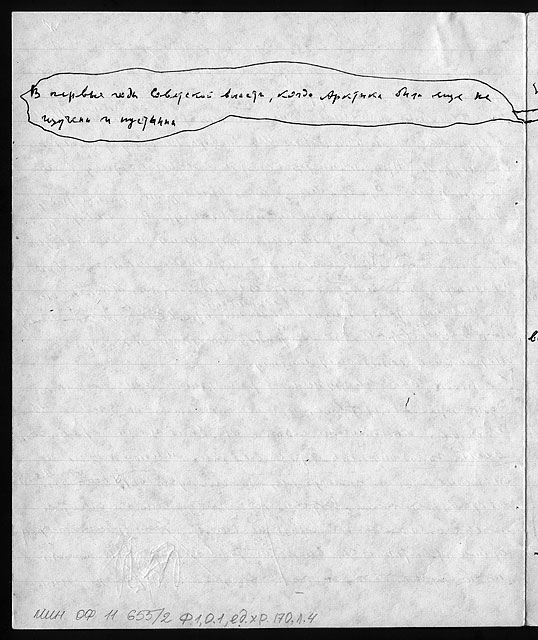 В первые годы Советской власти, когда Арктика была еще не
изучена и пустынна
МИН ОФ 11 655/2 Ф.1,О.1,ед.хр.170.л.4